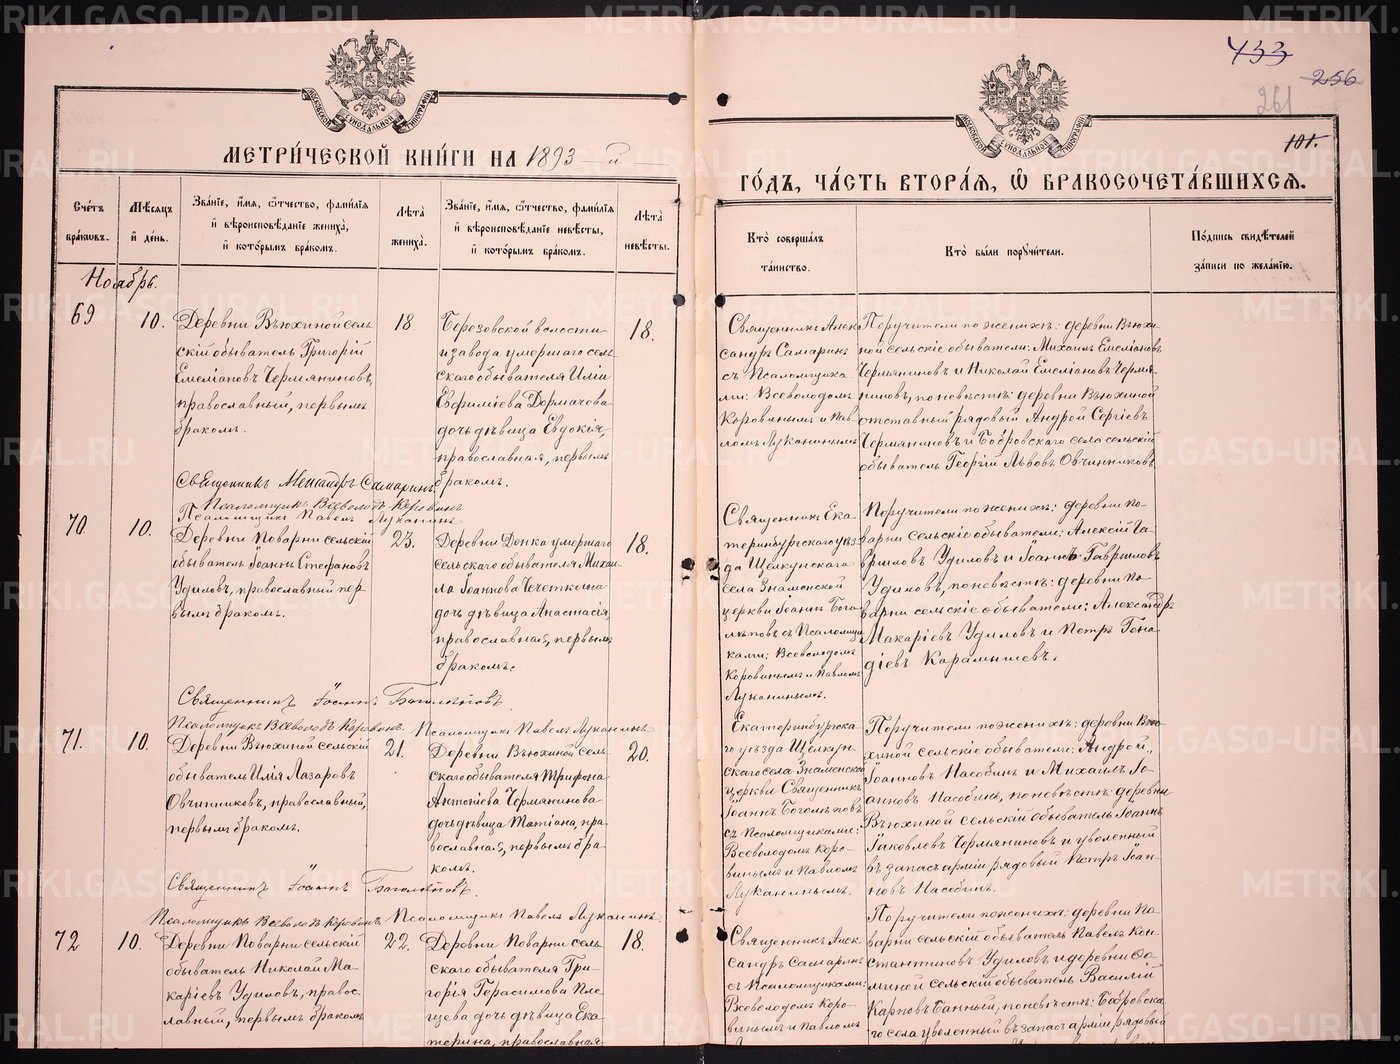 433
256
261
101.
МОСКОВСКОЙ СѶНОДАЛЬНОЙ ТИПОГРАФІИ
МОСКОВСКОЙ СѶНОДАЛЬНОЙ ТИПОГРАФІИ
МЕТРИ́ЧЕСКОЙ КНИ́ГИ НА 1893 й
ГО́ДЪ, ЧА́СТЬ ВТОРА́Я, Ѽ БРАКОСОЧЕТА́ВШИХСЯ.
Сче́тъ
бра́ковъ.
Мѣ́сяцъ
и҆ де́нь.
Зва́нїе, и҆́мя, ѻ҆́тчество, фами́лїя
и҆ вѣроисповѣ́данїе жениха̀,
и҆ кото́рымъ бра́комъ.
Лѣ́та
жениха̀.
Зва́нїе, и҆́мя, ѻ҆́тчество, фами́лїя
и҆ вѣроисповѣ́данїе невѣ́сты,
и҆ кото́рымъ бра́комъ.
Лѣ́та
невѣ́сты.
Кто̀ соверша́лъ
та́инство.
Кто̀ бы́ли порꙋчи́тели.
По́дпись свидѣ́телей
за́писи по жела́нїю.
Ноябрь.
69
10.
Деревни Вьюхиной сель
скій обыватель Григорій
Емеліановъ Чермяниновъ,
православный, первымъ
бракомъ.
18.
Березовской волости
и завода умершаго сель
скаго обывателя Иліи
Евфиміева Дормачева
дочь дѣвица Евдокія,
православная, первымъ
бракомъ.
18.
Священникъ Алек
сандръ Самаринъ
съ Псаломщика
ми: Всеволодомъ
Коровинымъ и Пав
ломъ Луканинымъ
Поручители по женихѣ: деревни Вьюхи-
ной сельскіе обыватели: Михаилъ Емеліановъ
Чермяниновъ и Николай Емеліановъ Чермя-
ниновъ, по невѣстѣ: деревни Вьюхиной
отставный рядовый Андрей Сергіевъ
Чермяниновъ и Бобровскаго села сельскій
обыватель Георгій Львовъ Овчинниковъ.
Священникъ Александръ Самаринъ
Псаломщикъ Всеволодъ Коровинъ
Псаломщикъ Павелъ Луканинъ
70
10.
Деревни Поварни сельскій
обыватель Іоаннъ Стефановъ
Удиловъ, православный пер
вымъ бракомъ.
23.
Деревни Донка умершаго
сельскаго обывателя Михаи
ла Іоаннова Чечеткина
дочь дѣвица Анастасія,
православная, первымъ
бракомъ.
18.
Священникъ Ека-
теринбургскаго уѣз
да Щелкунскаго
села Знаменской
церкви Іоаннъ Бого
лѣповъ съ Псаломщи
ками: Всеволодомъ
Коровинымъ и Павломъ
Луканинымъ.
Поручители по женихѣ: деревни По-
варни сельскіе обыватели: Алексій Га-
вриловъ Удиловъ и Іоаннъ Гавриловъ
Удиловъ, по невѣстѣ: деревни По-
варни сельскіе обыватели: Александръ
Макаріевъ Удиловъ и Петръ Гена-
діевъ Карамышевъ.
Священникъ Іоаннъ Боголѣповъ.
Псаломщикъ Всеволодъ Коровинъ. Псаломщикъ Павелъ Луканинъ
71.
10.
Деревни Вьюхиной сельскій
обыватель Илія Лазаровъ
Овчинниковъ, православный,
первымъ бракомъ.
21.
Деревни Вьюхиной сель
скаго обывателя Трифона
Антоніева Чермянинова
дочь дѣвица Татіана, пра
вославная, первымъ бра-
комъ.
20.
Екатеринбургска-
го уѣзда Щелкун-
скаго села Знаменской
церкви Священникъ
Іоаннъ Боголѣповъ
съ Псаломщиками:
Всеволодомъ Коро-
винымъ и Павломъ
Луканинымъ.
Поручители по женихѣ: деревни Вью-
хиной сельскіе обыватели: Андрей
Іоанновъ Насобинъ и Михаилъ Іо-
анновъ Насобинъ, по невѣстѣ: деревни
Вьюхиной сельскій обыватель Іоаннъ
Іаковлевъ Чермяниновъ и уволенный
въ запасъ арміи рядовый Петръ Іоан-
новъ Насобинъ.
Священникъ Іоаннъ Боголѣповъ.
Псаломщикъ Всеволодъ Коровинъ Псаломщикъ Павелъ Луканинъ.
72
10.
Деревни Поварни сельскій
обыватель Николай Ма-
каріевъ Удиловъ, правос-
лавный, первымъ бракомъ
22.
Деревни Поварни сель
скаго обывателя Гри-
горія Герасимова Пле-
щева дочь дѣвица Ека-
терина, православная
18.
Священникъ Алек
сандръ Самаринъ
съ Псаломщиками:
Всеволодомъ Коро-
винымъ и Павломъ
Поручители по женихѣ: деревни По-
варни сельскій обыватель Павелъ Кон-
стантиновъ Удиловъ и деревни Фо-
миной сельскій обыватель Василій
Карповъ Банный, по невѣстѣ: Бобровска
го села уволенный въ запасъ арміи рядовый
METRIKI.GASO-URAL.RU